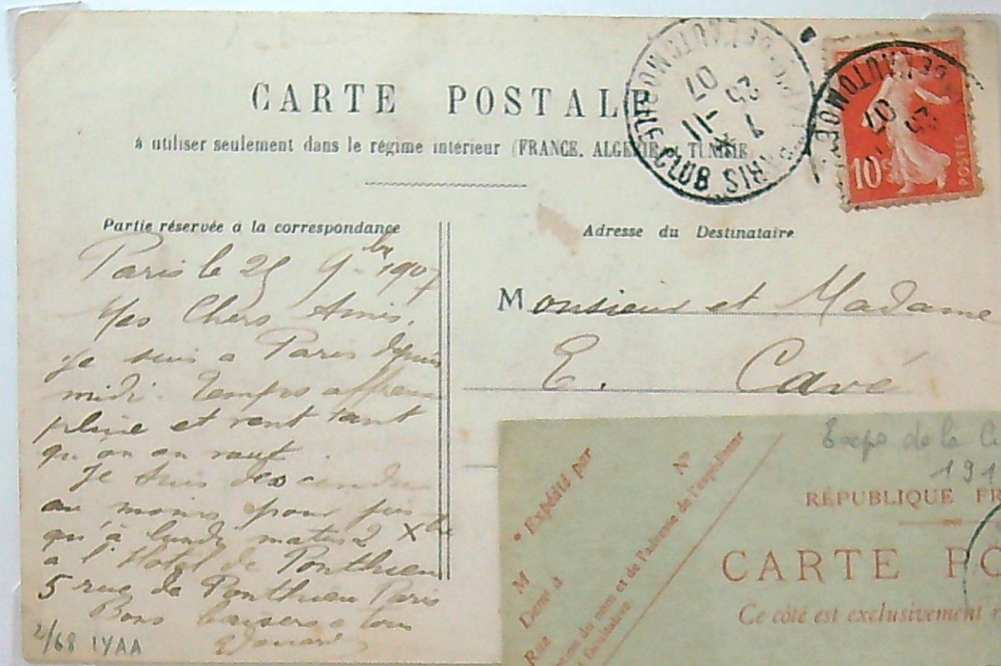 CARTE POSTALE
à utiliser seulement dans le régime intérieur (FRANCE, ALGERIE et TUNISIE)
DE L'AUTOMOBILE CLUB PARIS
25 -11 07
DE L'AUTOMOB
25 07
10c POSTES
Partie réservée à la correspondance
Paris le 25 9bre 1907
Mes Chers Amis,
Je suis a Paris depuis
midi. Temps affreux
pluie et vent tant
qu'on en veut.
Je suis descendu
au moins pour jus
qu'à lundi matin 2 Xbre
a l'Hotel de Ponthieu
5 rue de Ponthieu Paris
Bons baisers a tous
Edouard
2/68 1YAA
Adresse du Destinataire
Monsieur et Madame
E. Cavé
Expo de la
191
RÉPUBLIQUE FR
CARTE PO
Ce côté est exclusivement
Expédié par
M
Demt à
Rue
N°
du nom et de l'adresse de l'expéditeur
facultative.